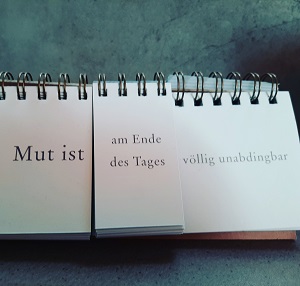 Mut ist
am Ende
des Tages
völlig unabdingbar